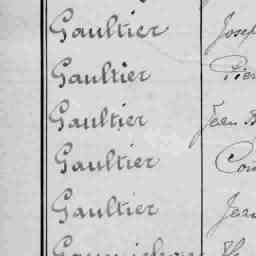 Gaultier Josep
Gaultier Pier
Gaultier Jean B
Gaultier
Gaultier Jean